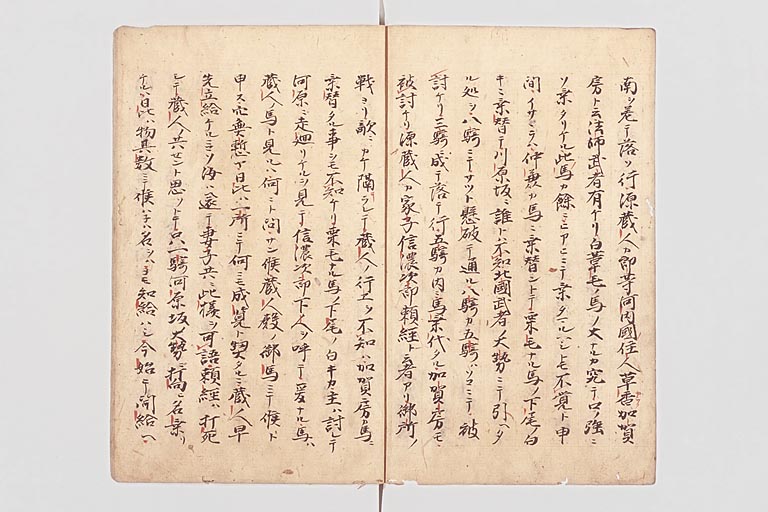 南ヲ差テ落ツ行源蔵人カ郎等河内國住人草香加賀
房ト云法師武者有ケリ白葦毛ノ馬ノ大ナルカ究テ口強ニ
ソ乗タリケル此馬カ餘ニアヒミテ乗タマルヘシトモ不覚ト申
間イサヽラハ仲兼カ馬ニ乗替ントテ栗毛ナル馬ノ下尾白
キニ乗替テ川原坂ニ誰トハ不知北國武者ノ大勢ニテ引ヘタ
ル処ヲ八騎ニテサツト懸破テ通ル八騎カ五騎ハソコニテ被
討ケリ三騎成テ落テ行五騎カ内ニ馬乗代タル加賀房モ
被討ケリ源蔵人カ家子信濃次郎頼経ト云者アリ御所ノ
戦ヨリ敵ニカケ隔ラレテ蔵人ノ行エヲ不知ハ加賀房カ馬ニ
乗替タル事ヲモ不知ケリ栗毛ナル馬ノ下尾ノ白キカ主ハ討レテ
河原ニ走廻リケルヲ見テ信濃次郎下人ヲ呼テ爰ナル馬ハ
蔵人ノ馬ト見ルハ何ニト問サン候蔵人殿ノ御馬ニテ候ト
申ス穴無慙ヤ日比ハ一所ニテ何ニモ成ハ覚ト契タルニ蔵人早
先立給ケルニコソ汝ハ逐テ妻子共ニ此様ヲ可語頼経ハ打死
シテ蔵人ト共セント思フトテ只一騎河原坂ノ大勢ニ打向テ名乗
ケルハ日比ハ物具数ニテ候ハネハ名ヲハヨモ知給ハシ今始テ聞給ヘ